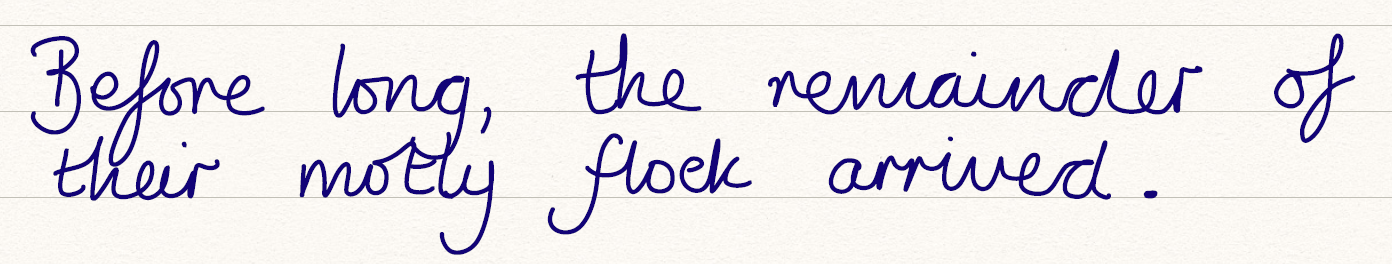 Before long, the remainder of
their motly flock arrived.